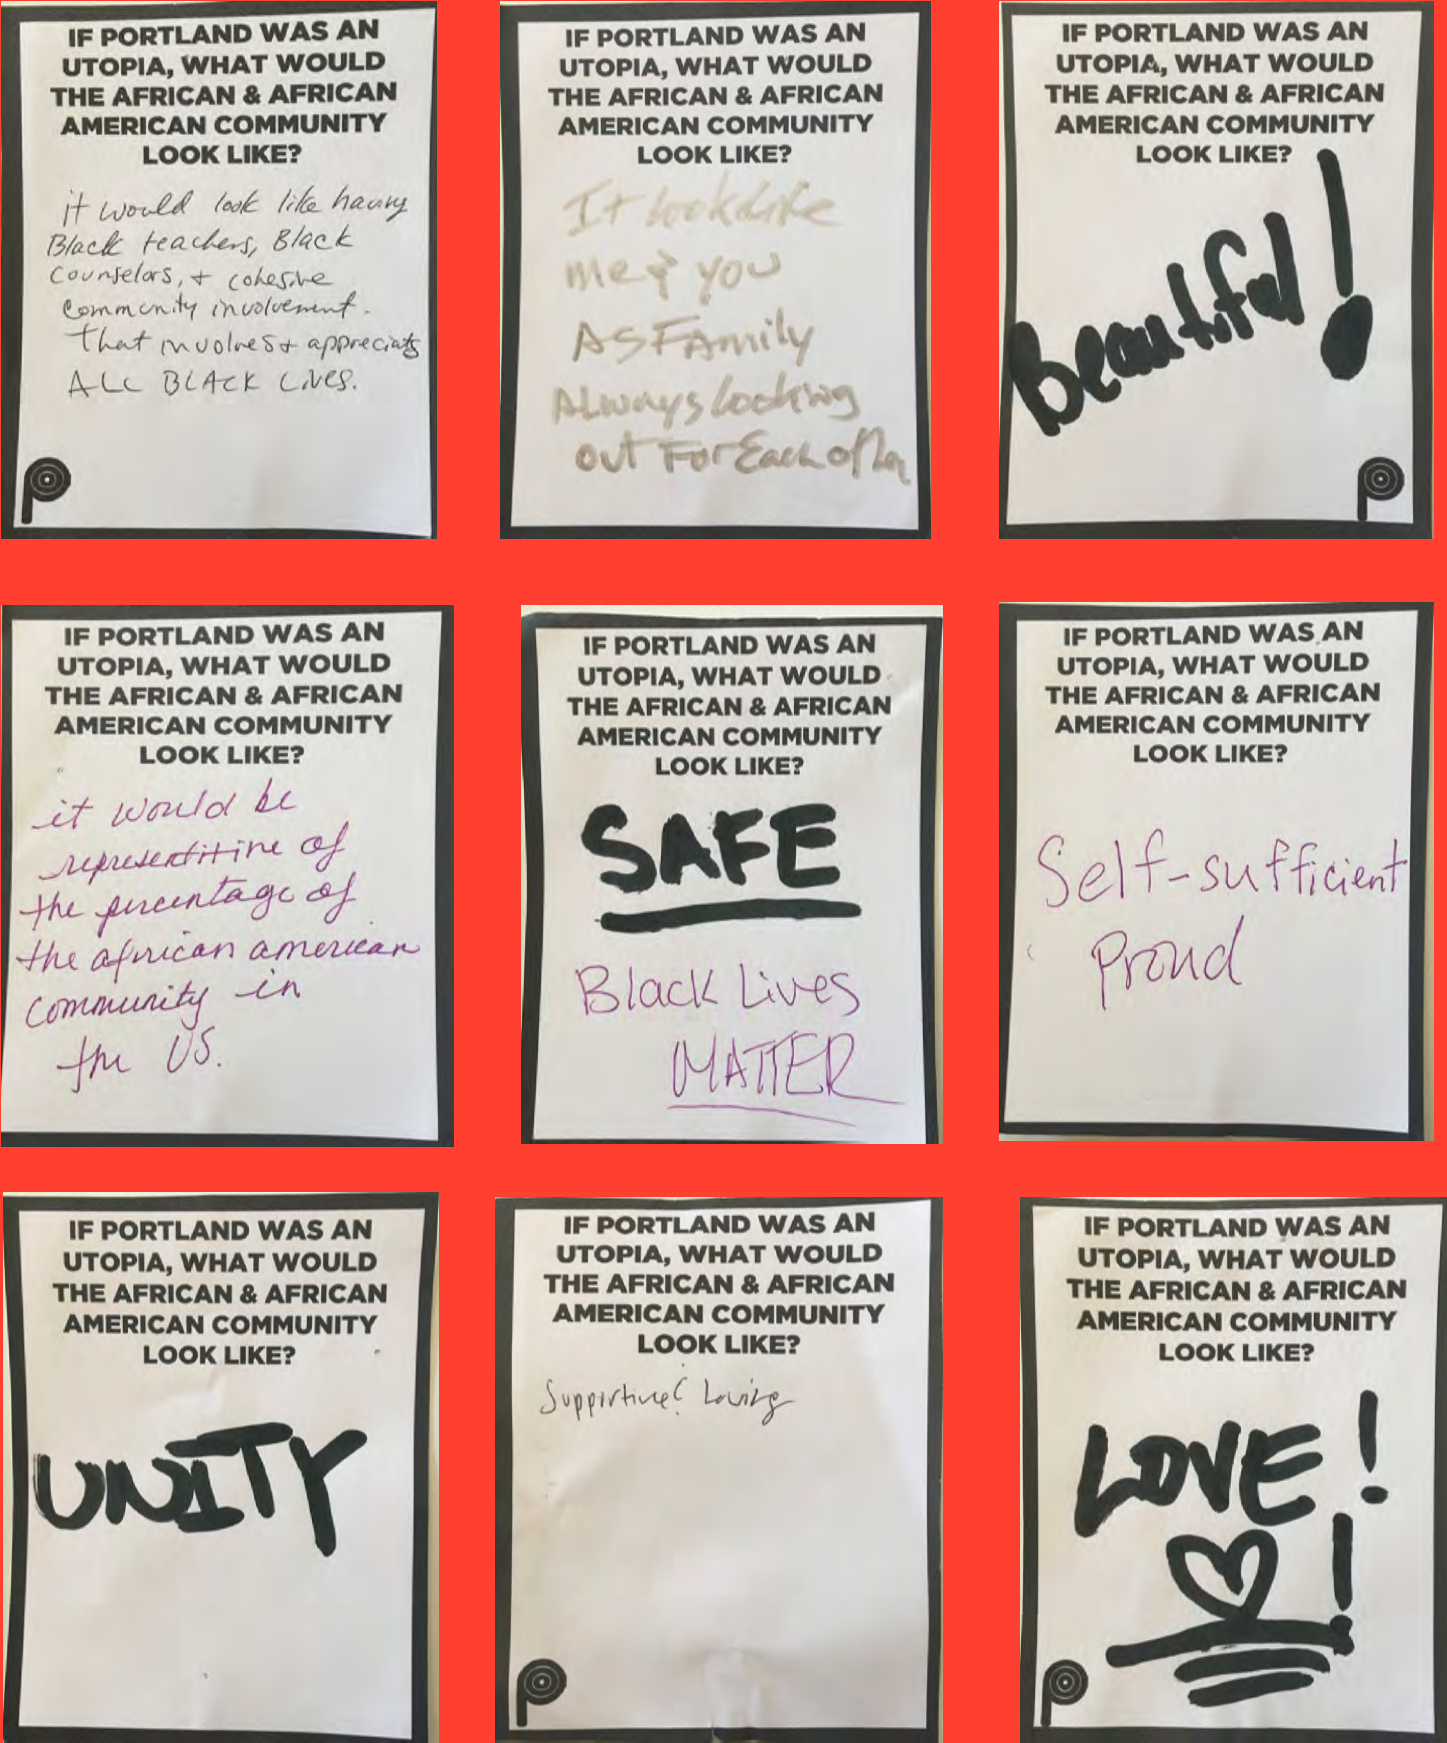 IF PORTLAND WAS AN
UTOPIA, WHAT WOULD
THE AFRICAN & AFRICAN
AMERICAN COMMUNITY
LOOK LIKE?
it would look like having
Black teachers, Black
Counselors, + cohesive
community involvement.
that involves + appreciats
ALL BLACK LIVES.
IF PORTLAND WAS AN
UTOPIA, WHAT WOULD
THE AFRICAN & AFRICAN
AMERICAN COMMUNITY
LOOK LIKE?
It look Like
me & you
AS FAmily
ALways Looking
out For Each other
IF PORTLAND WAS AN
UTOPIA, WHAT WOULD
THE AFRICAN & AFRICAN
AMERICAN COMMUNITY
LOOK LIKE?
Beautiful!
IF PORTLAND WAS AN
UTOPIA, WHAT WOULD
THE AFRICAN & AFRICAN
AMERICAN COMMUNITY
LOOK LIKE?
it would be
representitive of
the percentage of
the african american
community in
the US.
IF PORTLAND WAS AN
UTOPIA, WHAT WOULD
THE AFRICAN & AFRICAN
AMERICAN COMMUNITY
LOOK LIKE?
SAFE
Black Lives
MATTER
IF PORTLAND WAS AN
UTOPIA, WHAT WOULD
THE AFRICAN & AFRICAN
AMERICAN COMMUNITY
LOOK LIKE?
Self-sufficient
Proud
IF PORTLAND WAS AN
UTOPIA, WHAT WOULD
THE AFRICAN & AFRICAN
AMERICAN COMMUNITY
LOOK LIKE?
UNITY
IF PORTLAND WAS AN
UTOPIA, WHAT WOULD
THE AFRICAN & AFRICAN
AMERICAN COMMUNITY
LOOK LIKE?
Supportive & Loving
IF PORTLAND WAS AN
UTOPIA, WHAT WOULD
THE AFRICAN & AFRICAN
AMERICAN COMMUNITY
LOOK LIKE?
LOVE!
!